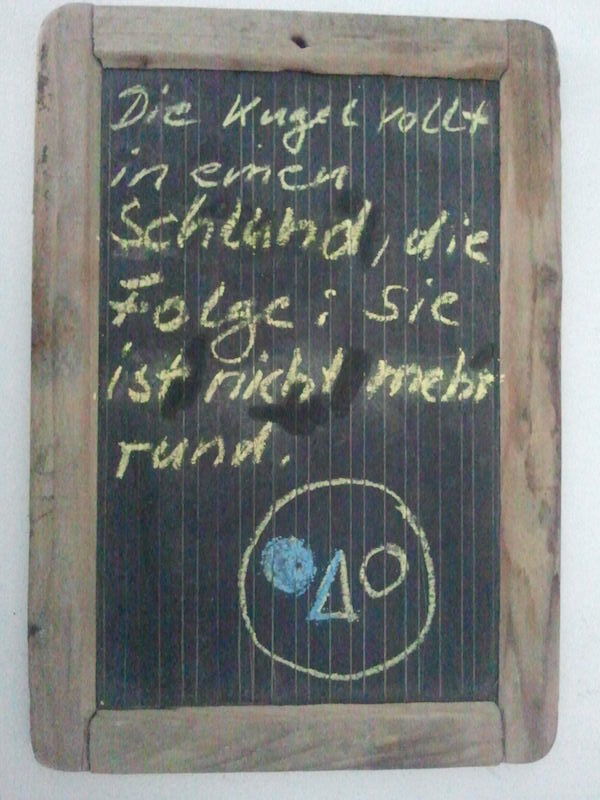 Die Kugel rollt
in einen
Schlund, die
Folge: sie
ist nicht mehr
rund.